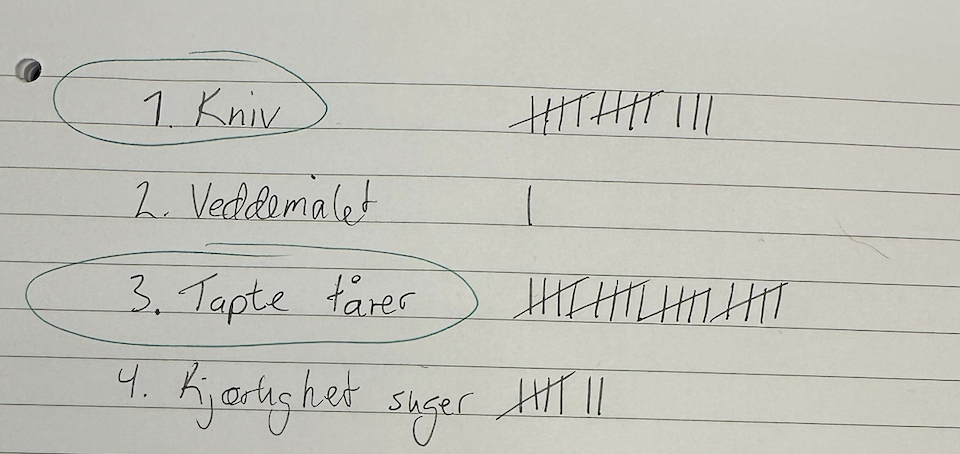 1. Kniv 𝍸 𝍸 |||
2. Veddemålet |
3. Tapte tårer 𝍸 𝍸 𝍸 𝍸
4. Kjærlighet suger 𝍸 ||